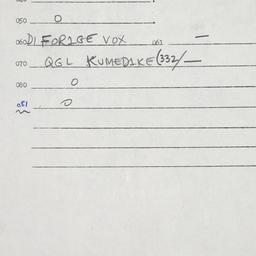 050 0
060 DI FORIGE VOX 061 —
070 QGL KUMEDIKE (332/—
080 0
081 0